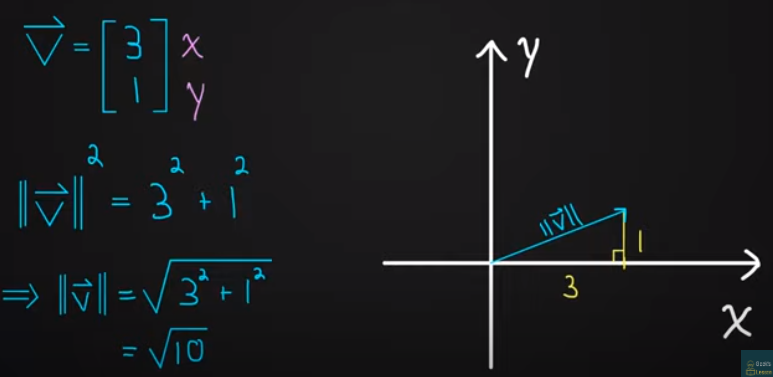 v⃗ = [3 1] x y
‖v⃗‖² = 3² + 1²
⇒ ‖v⃗‖ = √(3² + 1²)
= √10
y
‖v⃗‖
1
3
x